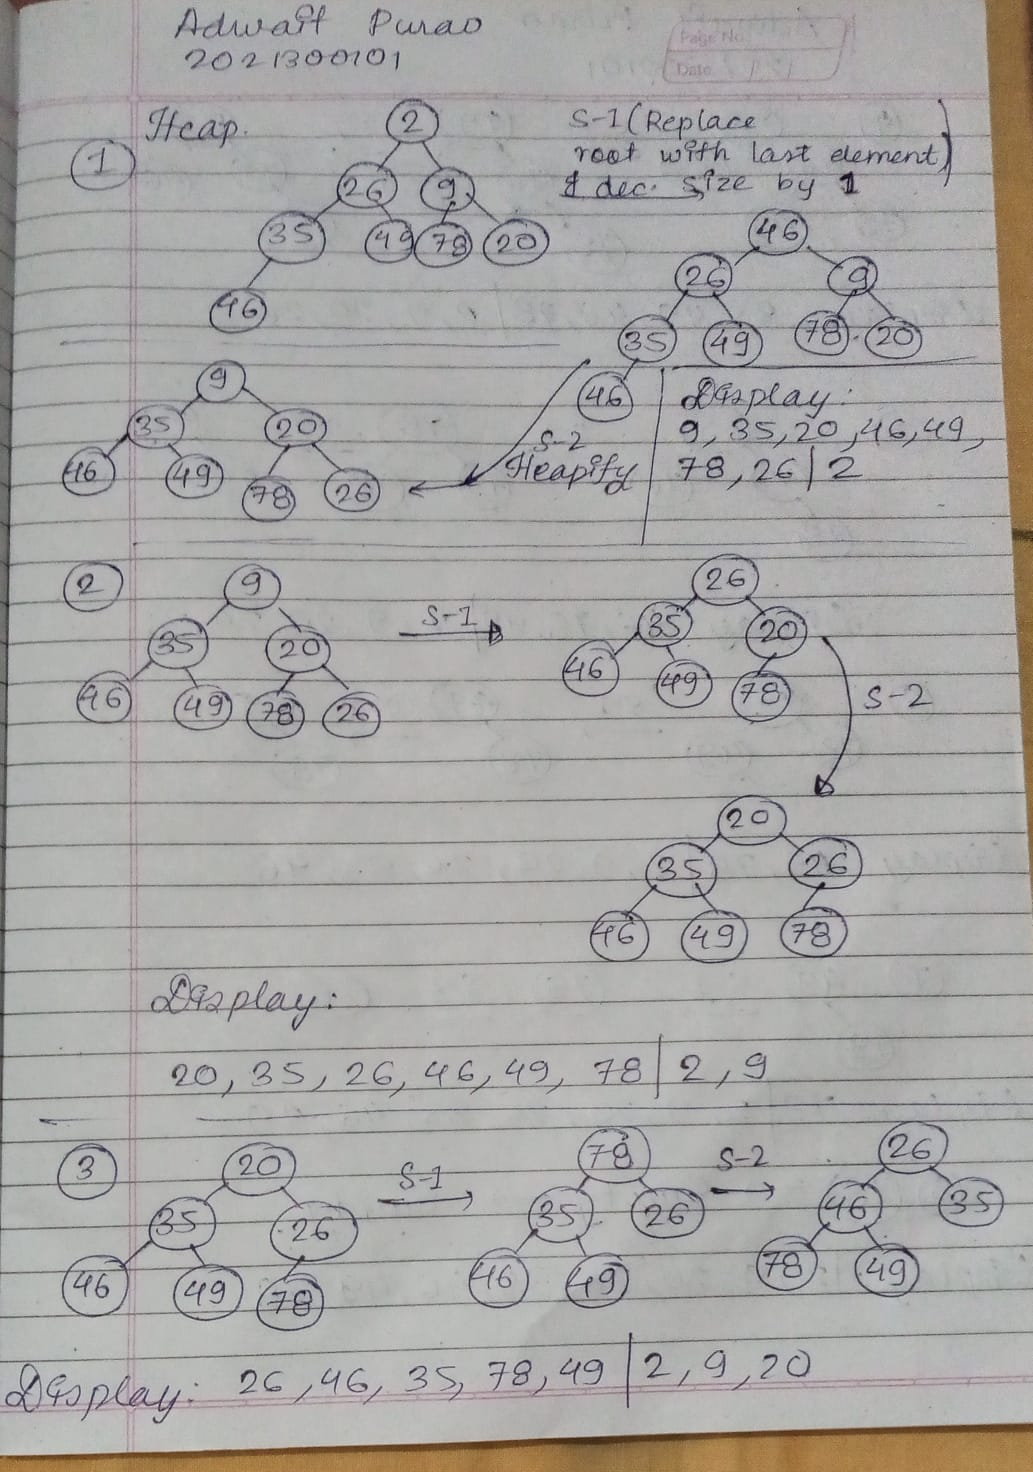 Adwait Purao
2021300101
Page No.
Date
Heap.
1
2
26 9
35 49 78 20
46
S-1 (Replace
root with last element)
& dec. size by 1
46
26 9
35 49 78 20
46
9
35 20
46 49 78 26
S-2
Heapify
Display:
9, 35, 20, 46, 49,
78, 26 | 2
2
9
35 20
46 49 78 26
S-1
26
35 20
46 49 78
S-2
20
35 26
46 49 78
Display:
20, 35, 26, 46, 49, 78 | 2, 9
3
20
35 26
46 49 78
S-1
78
35 26
46 49
S-2
26
46 35
78 49
Display: 26, 46, 35, 78, 49 | 2, 9, 20